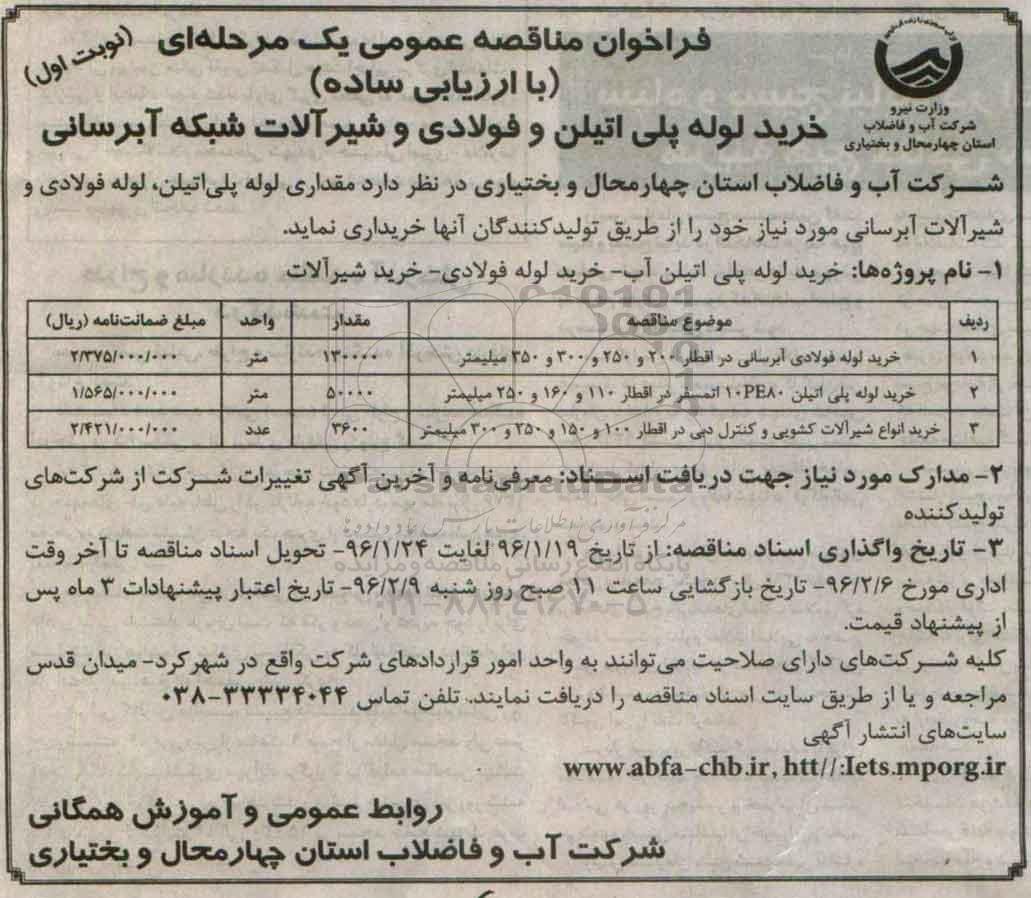 فراخوان مناقصه عمومی یک مرحله‌ای
(نوبت اول)
(با ارزیابی ساده)
خرید لوله پلی اتیلن و فولادی و شیرآلات شبکه آبرسانی
وزارت نیرو
شرکت آب و فاضلاب
استان چهارمحال و بختیاری
شرکت آب و فاضلاب استان چهارمحال و بختیاری در نظر دارد مقداری لوله پلی‌اتیلن، لوله فولادی و
شیرآلات آبرسانی مورد نیاز خود را از طریق تولیدکنندگان آنها خریداری نماید.
۱- نام پروژه‌ها: خرید لوله پلی اتیلن آب- خرید لوله فولادی- خرید شیرآلات
ردیف موضوع مناقصه مقدار واحد مبلغ ضمانت‌نامه (ریال)
۱ خرید لوله فولادی آبرسانی در اقطار ۲۰۰ و ۲۵۰ و ۳۰۰ و ۳۵۰ میلیمتر ۱۳۰۰۰۰ متر ۲/۳۷۵/۰۰۰/۰۰۰
۲ خرید لوله پلی اتیلن ۱۰PE۸۰ اتمسفر در اقطار ۱۱۰ و ۱۶۰ و ۲۵۰ میلیمتر ۵۰۰۰۰ متر ۱/۵۶۵/۰۰۰/۰۰۰
۳ خرید انواع شیرآلات کشویی و کنترل دبی در اقطار ۱۰۰ و ۱۵۰ و ۲۵۰ و ۳۰۰ میلیمتر ۳۶۰۰ عدد ۲/۴۲۱/۰۰۰/۰۰۰
۲- مدارک مورد نیاز جهت دریافت اسناد: معرفی‌نامه و آخرین آگهی تغییرات شرکت از شرکت‌های
تولیدکننده
۳- تاریخ واگذاری اسناد مناقصه: از تاریخ ۹۶/۱/۱۹ لغایت ۹۶/۱/۲۴- تحویل اسناد مناقصه تا آخر وقت
اداری مورخ ۹۶/۲/۶- تاریخ بازگشایی ساعت ۱۱ صبح روز شنبه ۹۶/۲/۹- تاریخ اعتبار پیشنهادات ۳ ماه پس
از پیشنهاد قیمت.
کلیه شرکت‌های دارای صلاحیت می‌توانند به واحد امور قراردادهای شرکت واقع در شهرکرد- میدان قدس
مراجعه و یا از طریق سایت اسناد مناقصه را دریافت نمایند. تلفن تماس ۳۳۳۳۴۰۴۴-۰۳۸
سایت‌های انتشار آگهی
www.abfa-chb.ir, htt//:Iets.mporg.ir
روابط عمومی و آموزش همگانی
شرکت آب و فاضلاب استان چهارمحال و بختیاری
ParsNamadData
مرکز فرآوری اطلاعات پارس نماد داده‌ها
پایگاه اطلاع رسانی مناقصه و مزایده